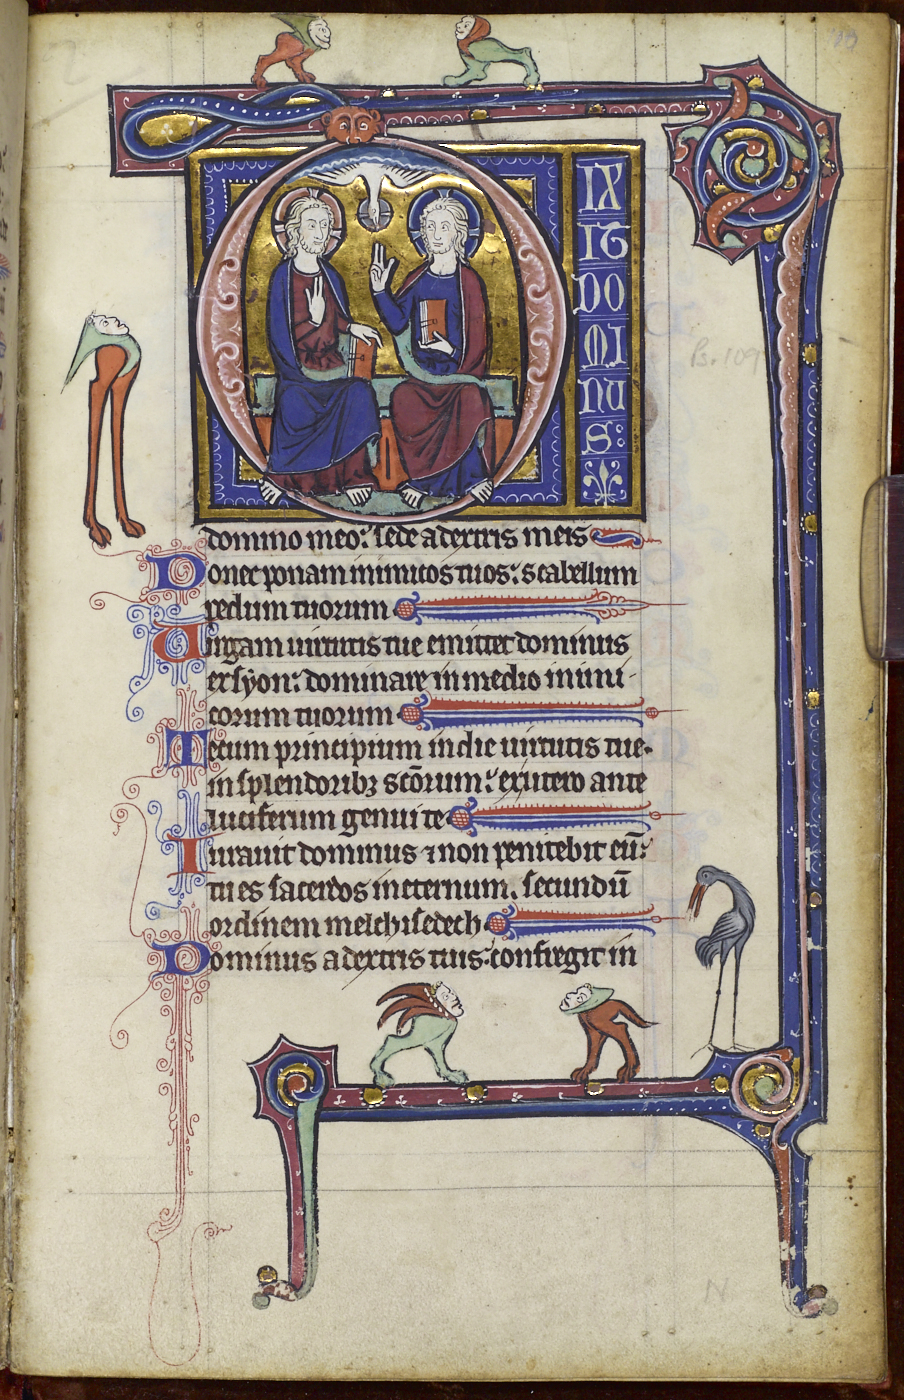 D
IX
IT
DO
MI
NU
S:
Ps. 109
domino meo: sede a dextris meis
Donec ponam inimicos tuos: scabellum
pedum tuorum
Uirgam uirtutis tue emittet dominus
ex syon: dominare in medio inimi
corum tuorum
Tecum principium in die uirtutis tue.
in splendoribꝫ scōrum: ex utero ante
luciferum genui te
Iurauit dominus ⁊ non penitebit eū:
tu es sacerdos in eternum. secundū
ordinem melchisedech
Dominus a dextris tuis: confregit in